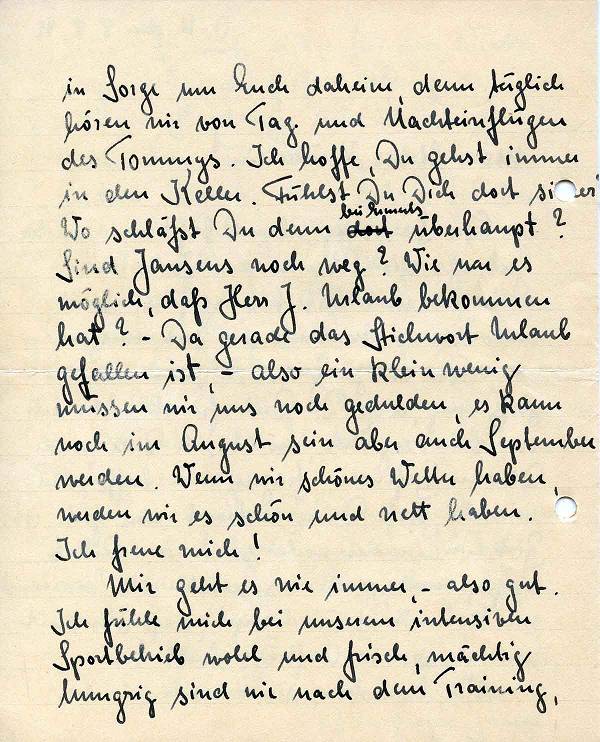 in Sorge um Euch daheim, denn täglich
hören wir von Tag und Nachteinflügen
des Tommys. Ich hoffe, Du gehst immer
in den Keller. Fühlst Du Dich dort sicher?
bei Emmels
Wo schläfst Du denn dort überhaupt?
Sind Jansens noch weg? Wie war es
möglich, daß Herr J. Urlaub bekommen
hat? - Da gerade das Stichwort Urlaub
gefallen ist, - also ein klein wenig
müssen wir uns noch gedulden, es kann
noch im August sein aber auch September
werden. Wenn wir schönes Wetter haben,
werden wir es schön und nett haben.
Ich freue mich!
Mir geht es wie immer, - also gut.
Ich fühle mich bei unserem intensiven
Sportbetrieb wohl und frisch, mächtig
hungrig sind wir nach dem Training,